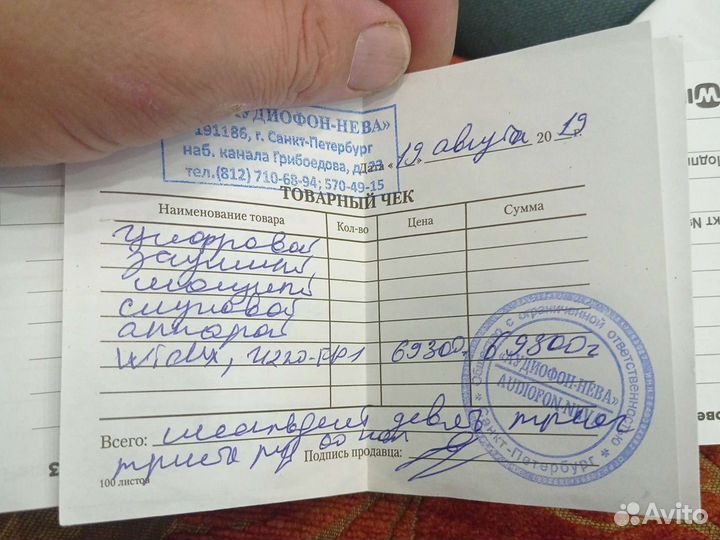 «АУДИОФОН-НЕВА»
191186, г. Санкт-Петербург
наб. канала Грибоедова, д.
тел.(812) 710-68-94; 570-49-15
Дата «19» августа 2019 г.
ТОВАРНЫЙ ЧЕК
Наименование товара Кол-во Цена Сумма
Цифровой
заушный
мощный
слуховой
аппарат
69300 69300
Общество с ограниченной ответственностью
«АУДИОФОН-НЕВА»
AUDIOFON-NEVA
Санкт-Петербург
Всего: шестьдесят девять тысяч
триста руб 00 коп
Подпись продавца:
100 листов
Avito